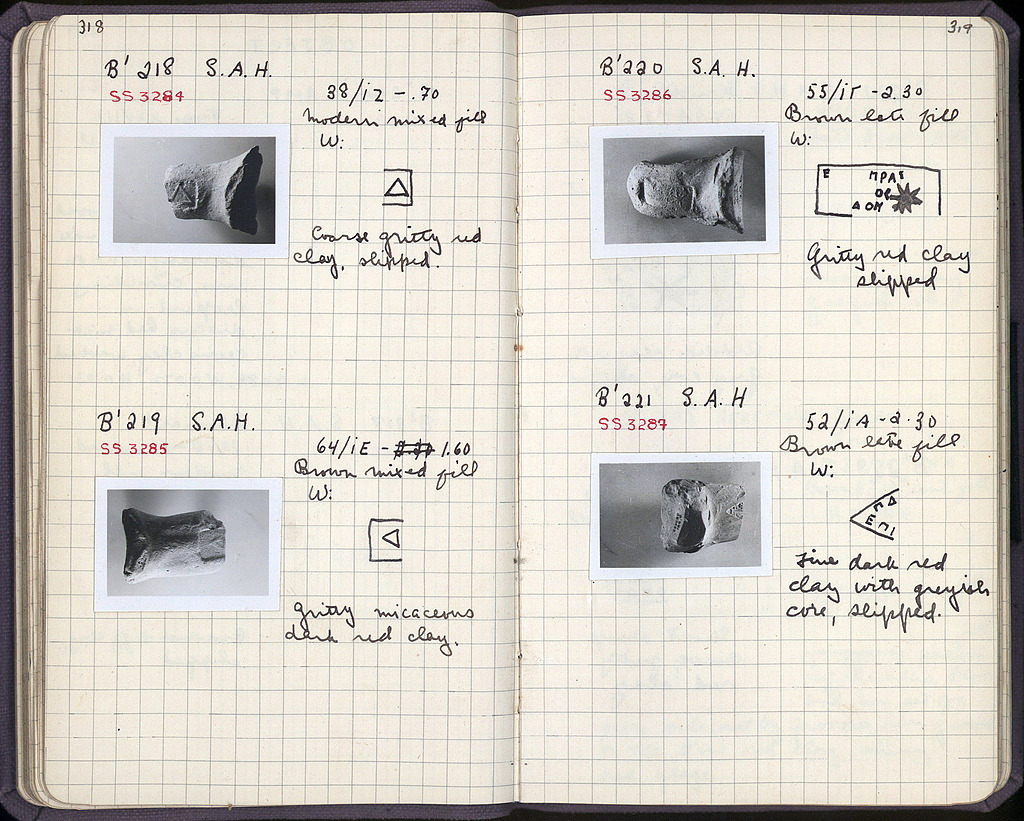 318
B' 218 S.A.H.
SS 3284
38/iz -.70
modern mixed fill
W:
Δ
Coarse gritty red
clay, slipped.
B' 219 S.A.H.
SS 3285
64/iE - 1.60
Brown mixed fill
W:
Gritty micaceous
dark red clay.
319
B' 220 S.A.H.
SS 3286
55/iΓ -2.30
Brown late fill
W:
E ΠΡΑΞ
ΔΟΜ
Gritty red clay
slipped
B' 221 S.A.H
SS 3287
52/iA -2.30
Brown late fill
W:
ΕΠΙ
Fine dark red
clay with greyish
core, slipped.